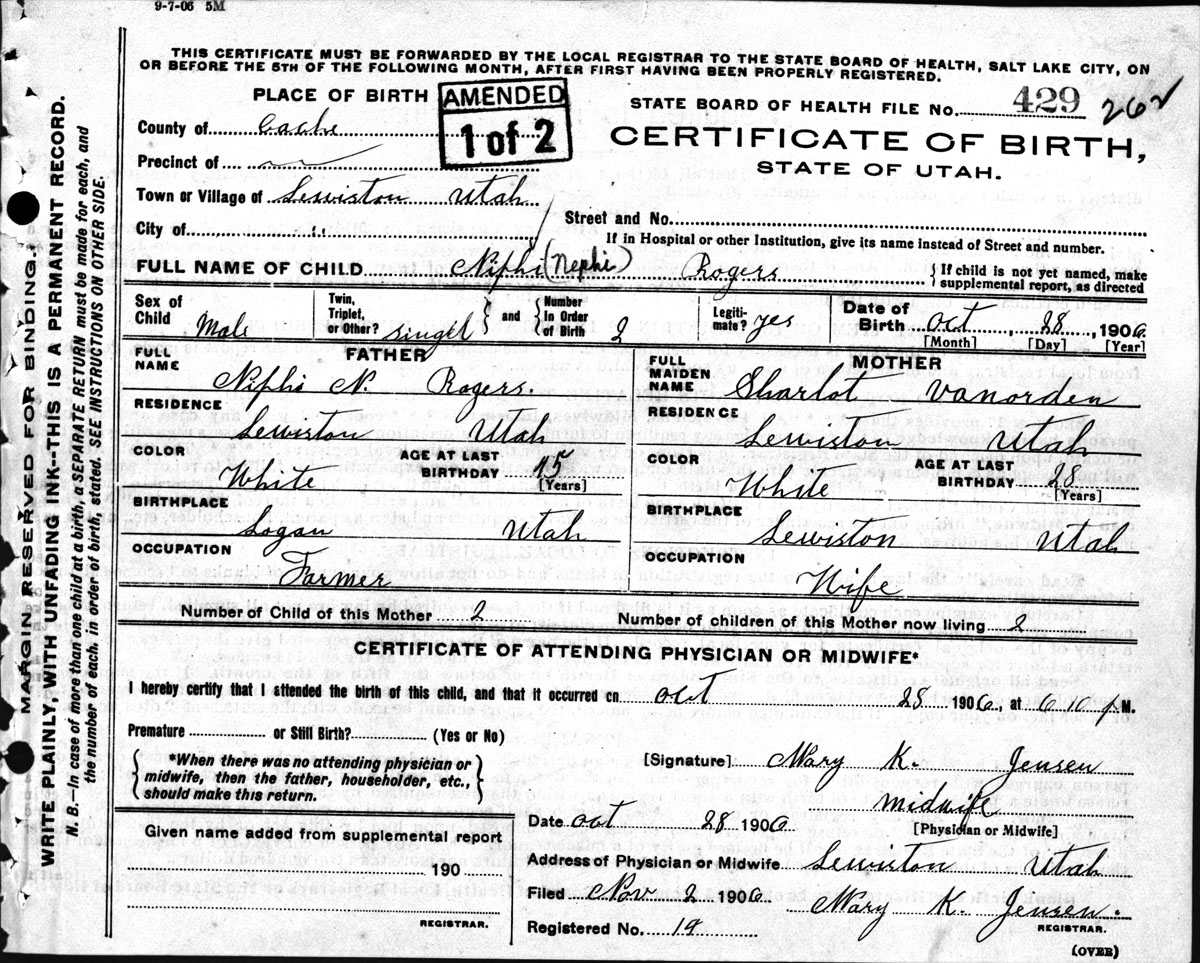 9-7-06 5M
THIS CERTIFICATE MUST BE FORWARDED BY THE LOCAL REGISTRAR TO THE STATE BOARD OF HEALTH, SALT LAKE CITY, ON
OR BEFORE THE 5TH OF THE FOLLOWING MONTH, AFTER FIRST HAVING BEEN PROPERLY REGISTERED.
PLACE OF BIRTH
AMENDED
1 of 2
STATE BOARD OF HEALTH FILE No. 429 262
CERTIFICATE OF BIRTH,
STATE OF UTAH.
County of Cache
Precinct of
Town or Village of Lewiston Utah
City of "
Street and No.
If in Hospital or other Institution, give its name instead of Street and number.
FULL NAME OF CHILD Niphi (Nephi) Rogers
{If child is not yet named, make
supplemental report, as directed
Sex of Child Male
Twin, Triplet, or Other? singel
and
Number In Order of Birth 2
Legitimate? yes
Date of Birth oct, 28, 1906
[Month] [Day] [Year]
FATHER
FULL NAME Niphi N. Rogers.
RESIDENCE Lewiston Utah
COLOR White
AGE AT LAST BIRTHDAY 45
[Years]
BIRTHPLACE Logan Utah
OCCUPATION Farmer
MOTHER
FULL MAIDEN NAME Sharlot vanorden
RESIDENCE Lewiston Utah
COLOR White
AGE AT LAST BIRTHDAY 28
[Years]
BIRTHPLACE Lewiston Utah
OCCUPATION Wife
Number of Child of this Mother 2
Number of children of this Mother now living 2
CERTIFICATE OF ATTENDING PHYSICIAN OR MIDWIFE*
I hereby certify that I attended the birth of this child, and that it occurred on oct 28 1906, at 6 10 p M.
Premature or Still Birth? (Yes or No)
{*When there was no attending physician or
midwife, then the father, householder, etc.,
should make this return.}
[Signature] Mary K. Jensen
midwife
[Physician or Midwife]
Date oct 28 1906
Given name added from supplemental report
190
REGISTRAR.
Address of Physician or Midwife Lewiston Utah
Filed Nov 2 1906 Mary K. Jensen.
REGISTRAR.
Registered No. 14
(OVER)
MARGIN RESERVED FOR BINDING.
WRITE PLAINLY, WITH UNFADING INK--THIS IS A PERMANENT RECORD.
N. B.—In case of more than one child at a birth, a SEPARATE RETURN must be made for each, and
the number of each, in order of birth, stated. SEE INSTRUCTIONS ON OTHER SIDE.